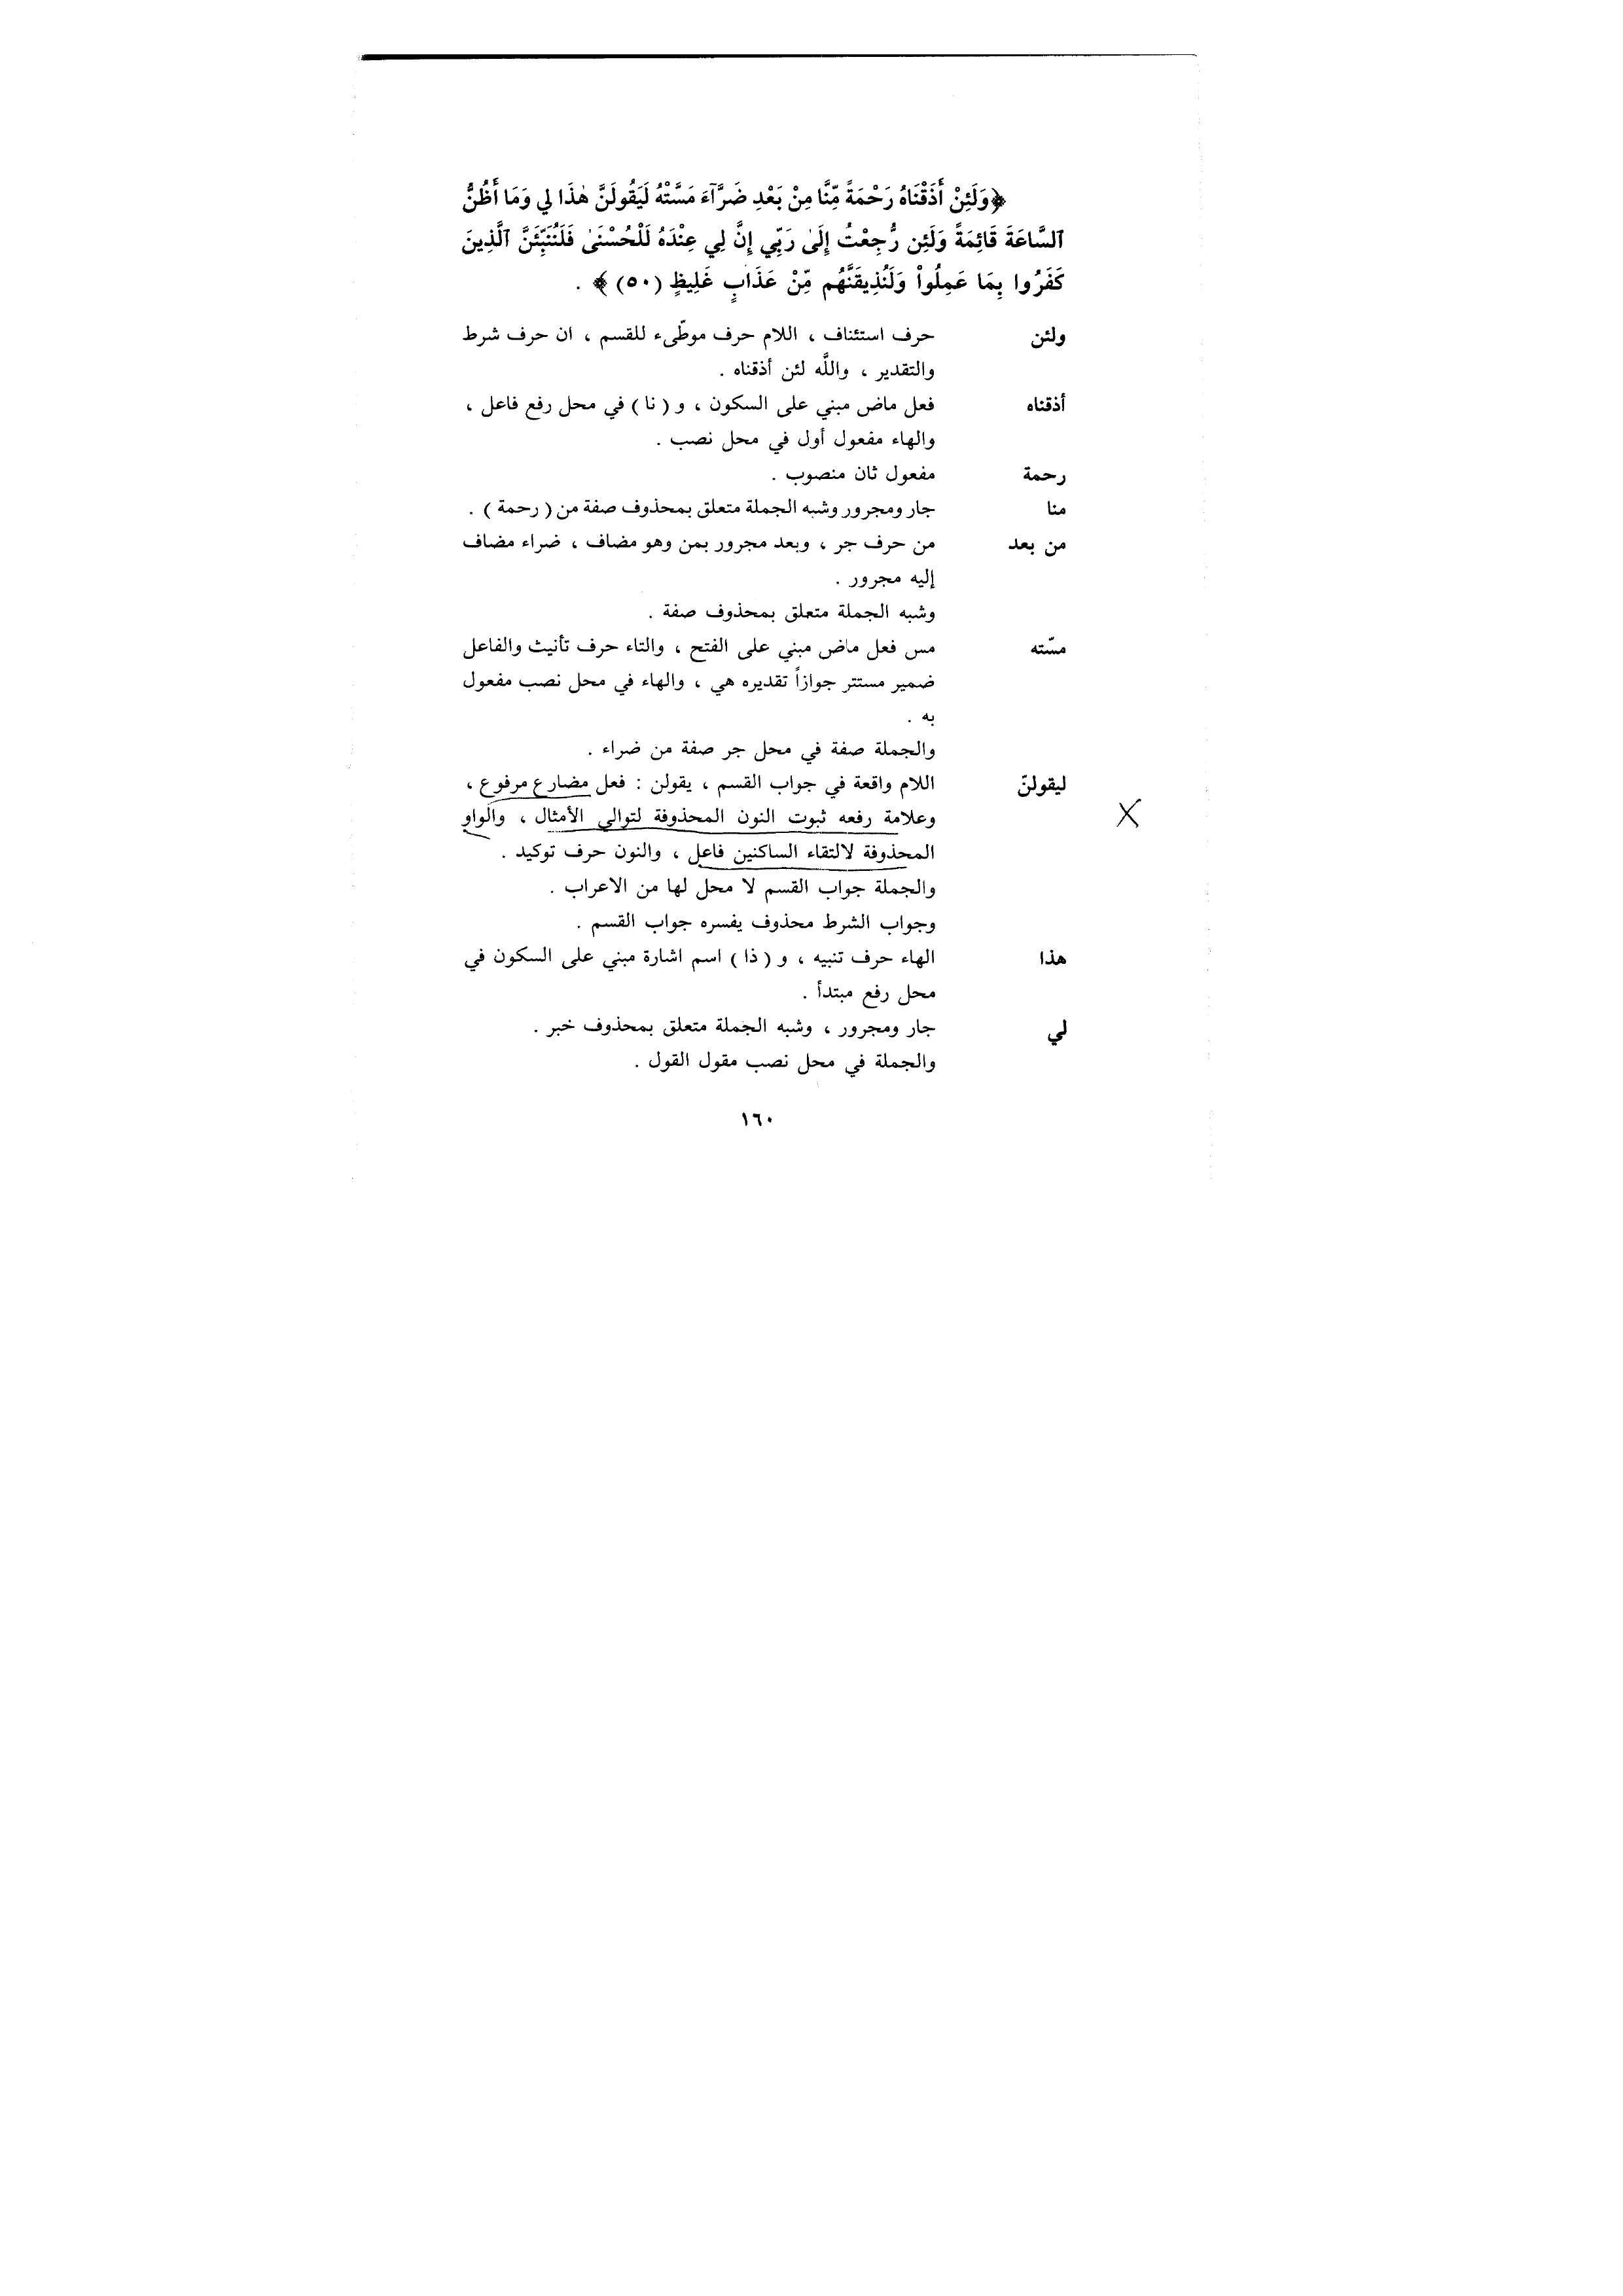 ﴿وَلَئِنْ أَذَقْنَاهُ رَحْمَةً مِّنَّا مِنْ بَعْدِ ضَرَّآءَ مَسَّتْهُ لَيَقُولَنَّ هٰذَا لِي وَمَا أَظُنُّ
ٱلسَّاعَةَ قَائِمَةً وَلَئِن رُّجِعْتُ إِلَىٰ رَبِّي إِنَّ لِي عِنْدَهُ لَلْحُسْنَىٰ فَلَنُنَبِّئَنَّ ٱلَّذِينَ
كَفَرُوا بِمَا عَمِلُواْ وَلَنُذِيقَنَّهُم مِّنْ عَذَابٍ غَلِيظٍ (٥٠)﴾ .
ولئن حرف استئناف ، اللام حرف موطّىء للقسم ، ان حرف شرط
والتقدير ، واللَّه لئن أذقناه .
أذقناه فعل ماض مبني على السكون ، و ( نا ) في محل رفع فاعل ،
والهاء مفعول أول في محل نصب .
رحمة مفعول ثان منصوب .
منا جار ومجرور وشبه الجملة متعلق بمحذوف صفة من ( رحمة ) .
من بعد من حرف جر ، وبعد مجرور بمن وهو مضاف ، ضراء مضاف
إليه مجرور .
وشبه الجملة متعلق بمحذوف صفة .
مسّته مس فعل ماض مبني على الفتح ، والتاء حرف تأنيث والفاعل
ضمير مستتر جوازاً تقديره هي ، والهاء في محل نصب مفعول
به .
والجملة صفة في محل جر صفة من ضراء .
ليقولنّ اللام واقعة في جواب القسم ، يقولن : فعل مضارع مرفوع ،
وعلامة رفعه ثبوت النون المحذوفة لتوالي الأمثال ، والواو
المحذوفة لالتقاء الساكنين فاعل ، والنون حرف توكيد .
والجملة جواب القسم لا محل لها من الاعراب .
وجواب الشرط محذوف يفسره جواب القسم .
هذا الهاء حرف تنبيه ، و ( ذا ) اسم اشارة مبني على السكون في
محل رفع مبتدأ .
لي جار ومجرور ، وشبه الجملة متعلق بمحذوف خبر .
والجملة في محل نصب مقول القول .
١٦٠